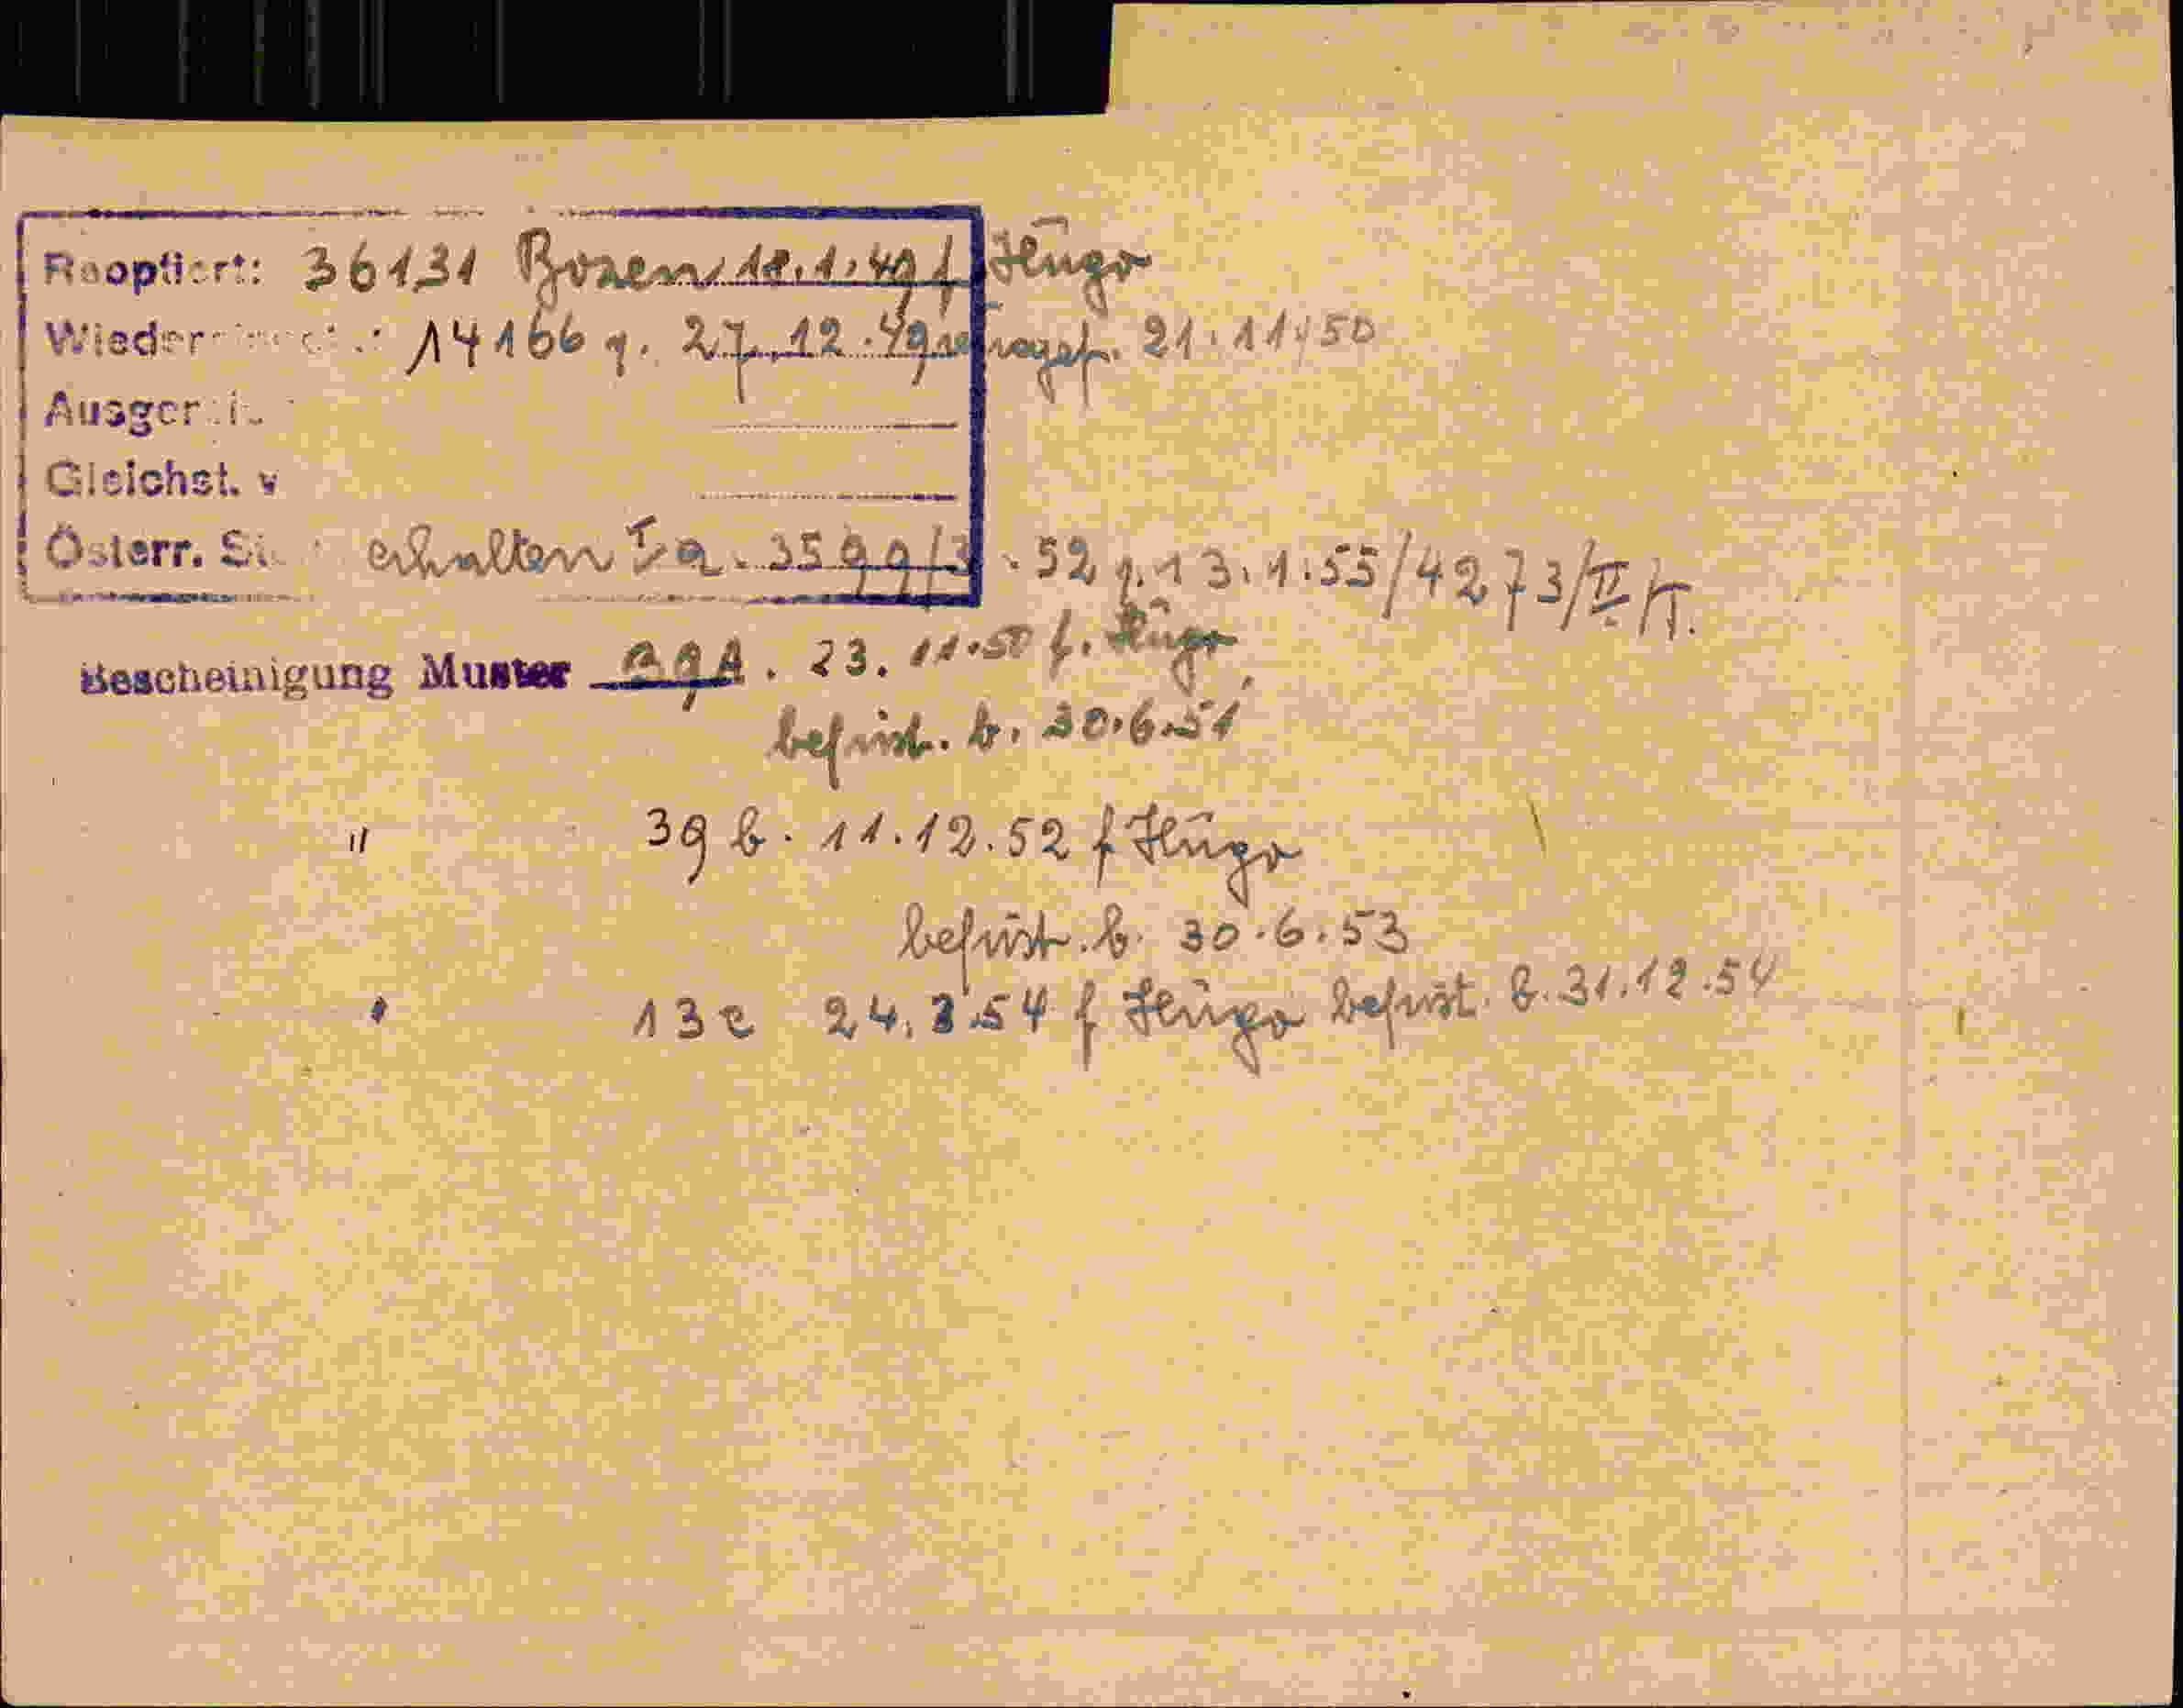 Reoptiert: 36131 Bozen 18.1.49 f Hugo
14166 v. 27.12.49 21.11.50
Gleichst.
Österr. erhalten Ia. 3599/3 . 52 v. 13.1.55/4273/II/
Bescheinigung Muster . 23. 11.50 f. Hugo
befrist. b. 30.6.51
" 39 b. 11.12.52 f Hugo
befrist. b. 30.6.53
" 13 c 24.3.54 f Hugo befrist. b. 31.12.54